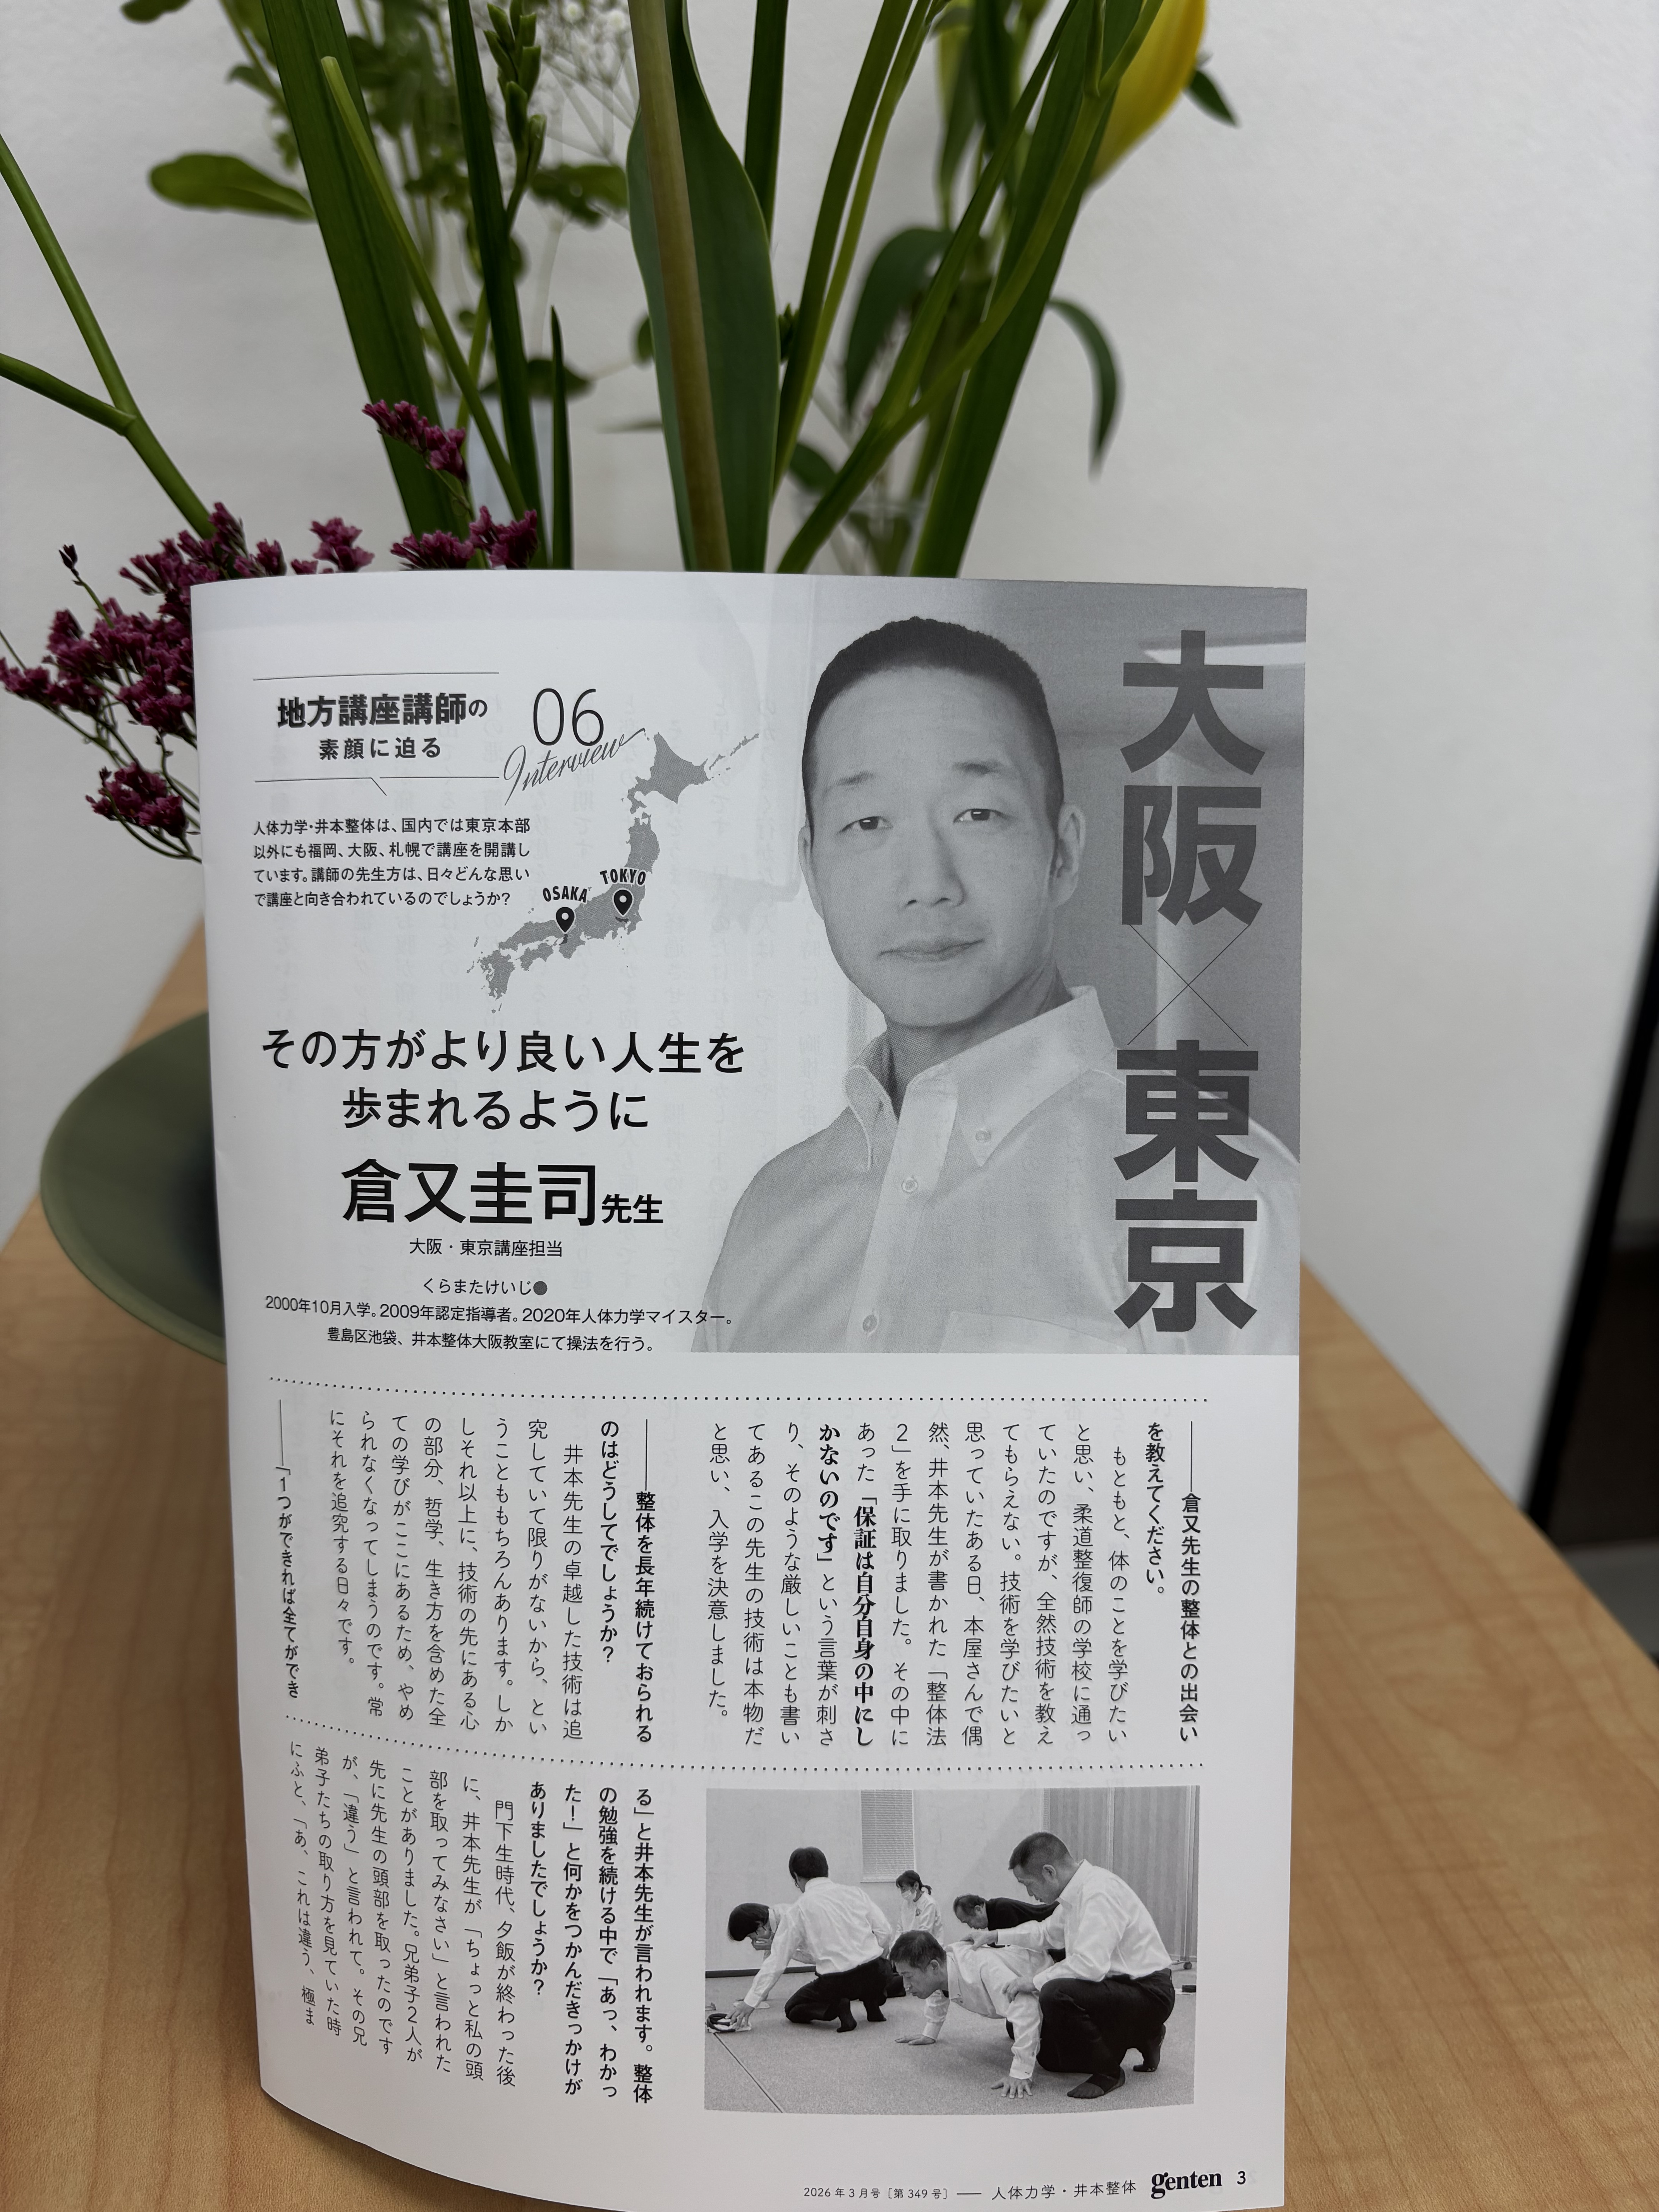 大阪×東京
地方講座講師の
素顔に迫る
06
Interview
人体力学・井本整体は、国内では東京本部
以外にも福岡、大阪、札幌で講座を開講し
ています。講師の先生方は、日々どんな思い
で講座と向き合われているのでしょうか?
TOKYO
OSAKA
その方がより良い人生を
歩まれるように
倉又圭司先生
大阪・東京講座担当
くらまたけいじ●
2000年10月入学。2009年認定指導者。2020年人体力学マイスター。
豊島区池袋、井本整体大阪教室にて操法を行う。
――倉又先生の整体との出会い
を教えてください。
もともと、体のことを学びたい
と思い、柔道整復師の学校に通っ
ていたのですが、全然技術を教え
てもらえない。技術を学びたいと
思っていたある日、本屋さんで偶
然、井本先生が書かれた「整体法
2」を手に取りました。その中に
あった「保証は自分自身の中にし
かないのです」という言葉が刺さ
り、そのような厳しいことも書い
てあるこの先生の技術は本物だ
と思い、入学を決意しました。
――整体を長年続けておられる
のはどうしてでしょうか?
井本先生の卓越した技術は追
究していて限りがないから、とい
うことももちろんあります。しか
しそれ以上に、技術の先にある心
の部分、哲学、生き方を含めた全
ての学びがここにあるため、やめ
られなくなってしまうのです。常
にそれを追究する日々です。
――「1つができれば全てができ
る」と井本先生が言われます。整体
の勉強を続ける中で「あっ、わかっ
た!」と何かをつかんだきっかけが
ありましたでしょうか?
門下生時代、夕飯が終わった後
に、井本先生が「ちょっと私の頭
部を取ってみなさい」と言われた
ことがありました。兄弟子2人が
先に先生の頭部を取ったのです
が、「違う」と言われて。その兄
弟子たちの取り方を見ていた時
にふと、「あ、これは違う、極ま
2026年3月号[第349号]―― 人体力学・井本整体 genten 3